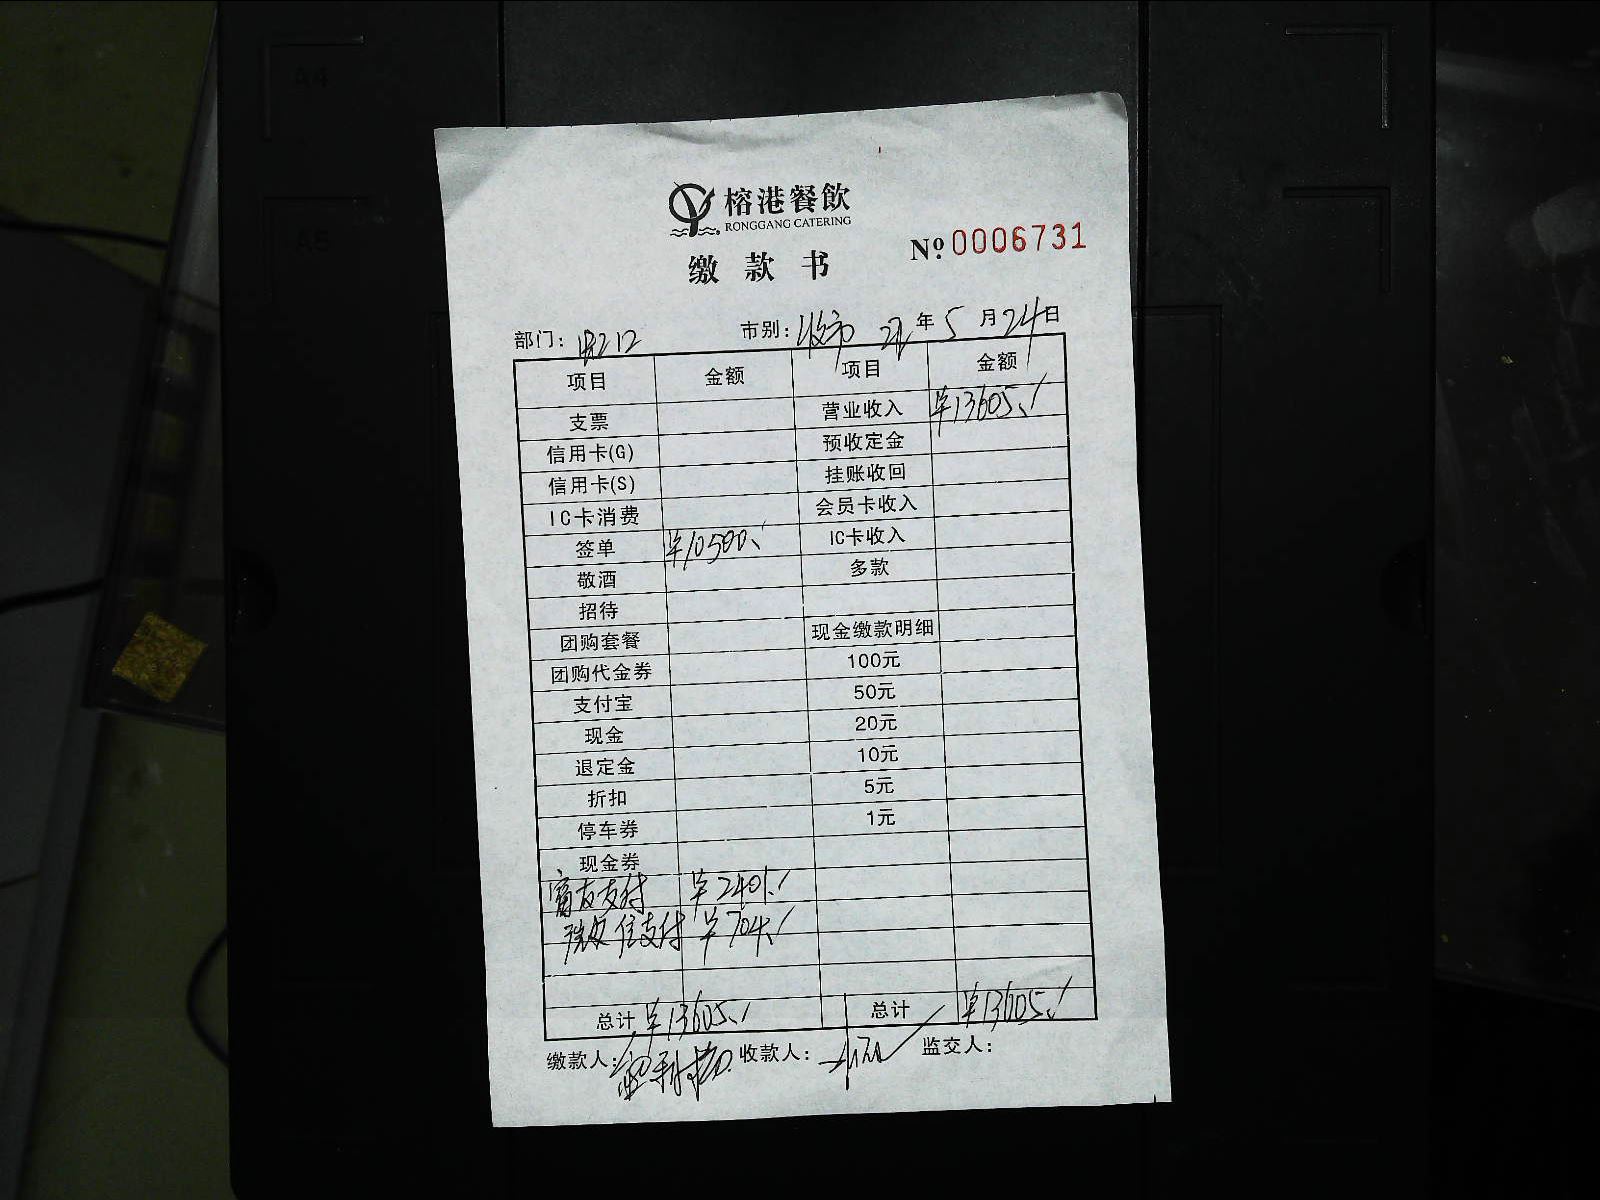 A4
A5
榕港餐飲
RONGGANG CATERING
缴款书
№ 0006731
部门: 市别: 收市 22年5月24日
项目 金额 项目 金额
支票 营业收入 ¥13605./
信用卡(G) 预收定金
信用卡(S) 挂账收回
IC卡消费 会员卡收入
签单 ¥10500./ IC卡收入
敬酒 多款
招待
团购套餐 现金缴款明细
团购代金券 100元
支付宝 50元
现金 20元
退定金 10元
折扣 5元
停车券 1元
现金券
富友支付 ¥2401./
微信支付 ¥704./
总计 ¥13605./ 总计 ¥13605./
缴款人: 收款人: 监交人: